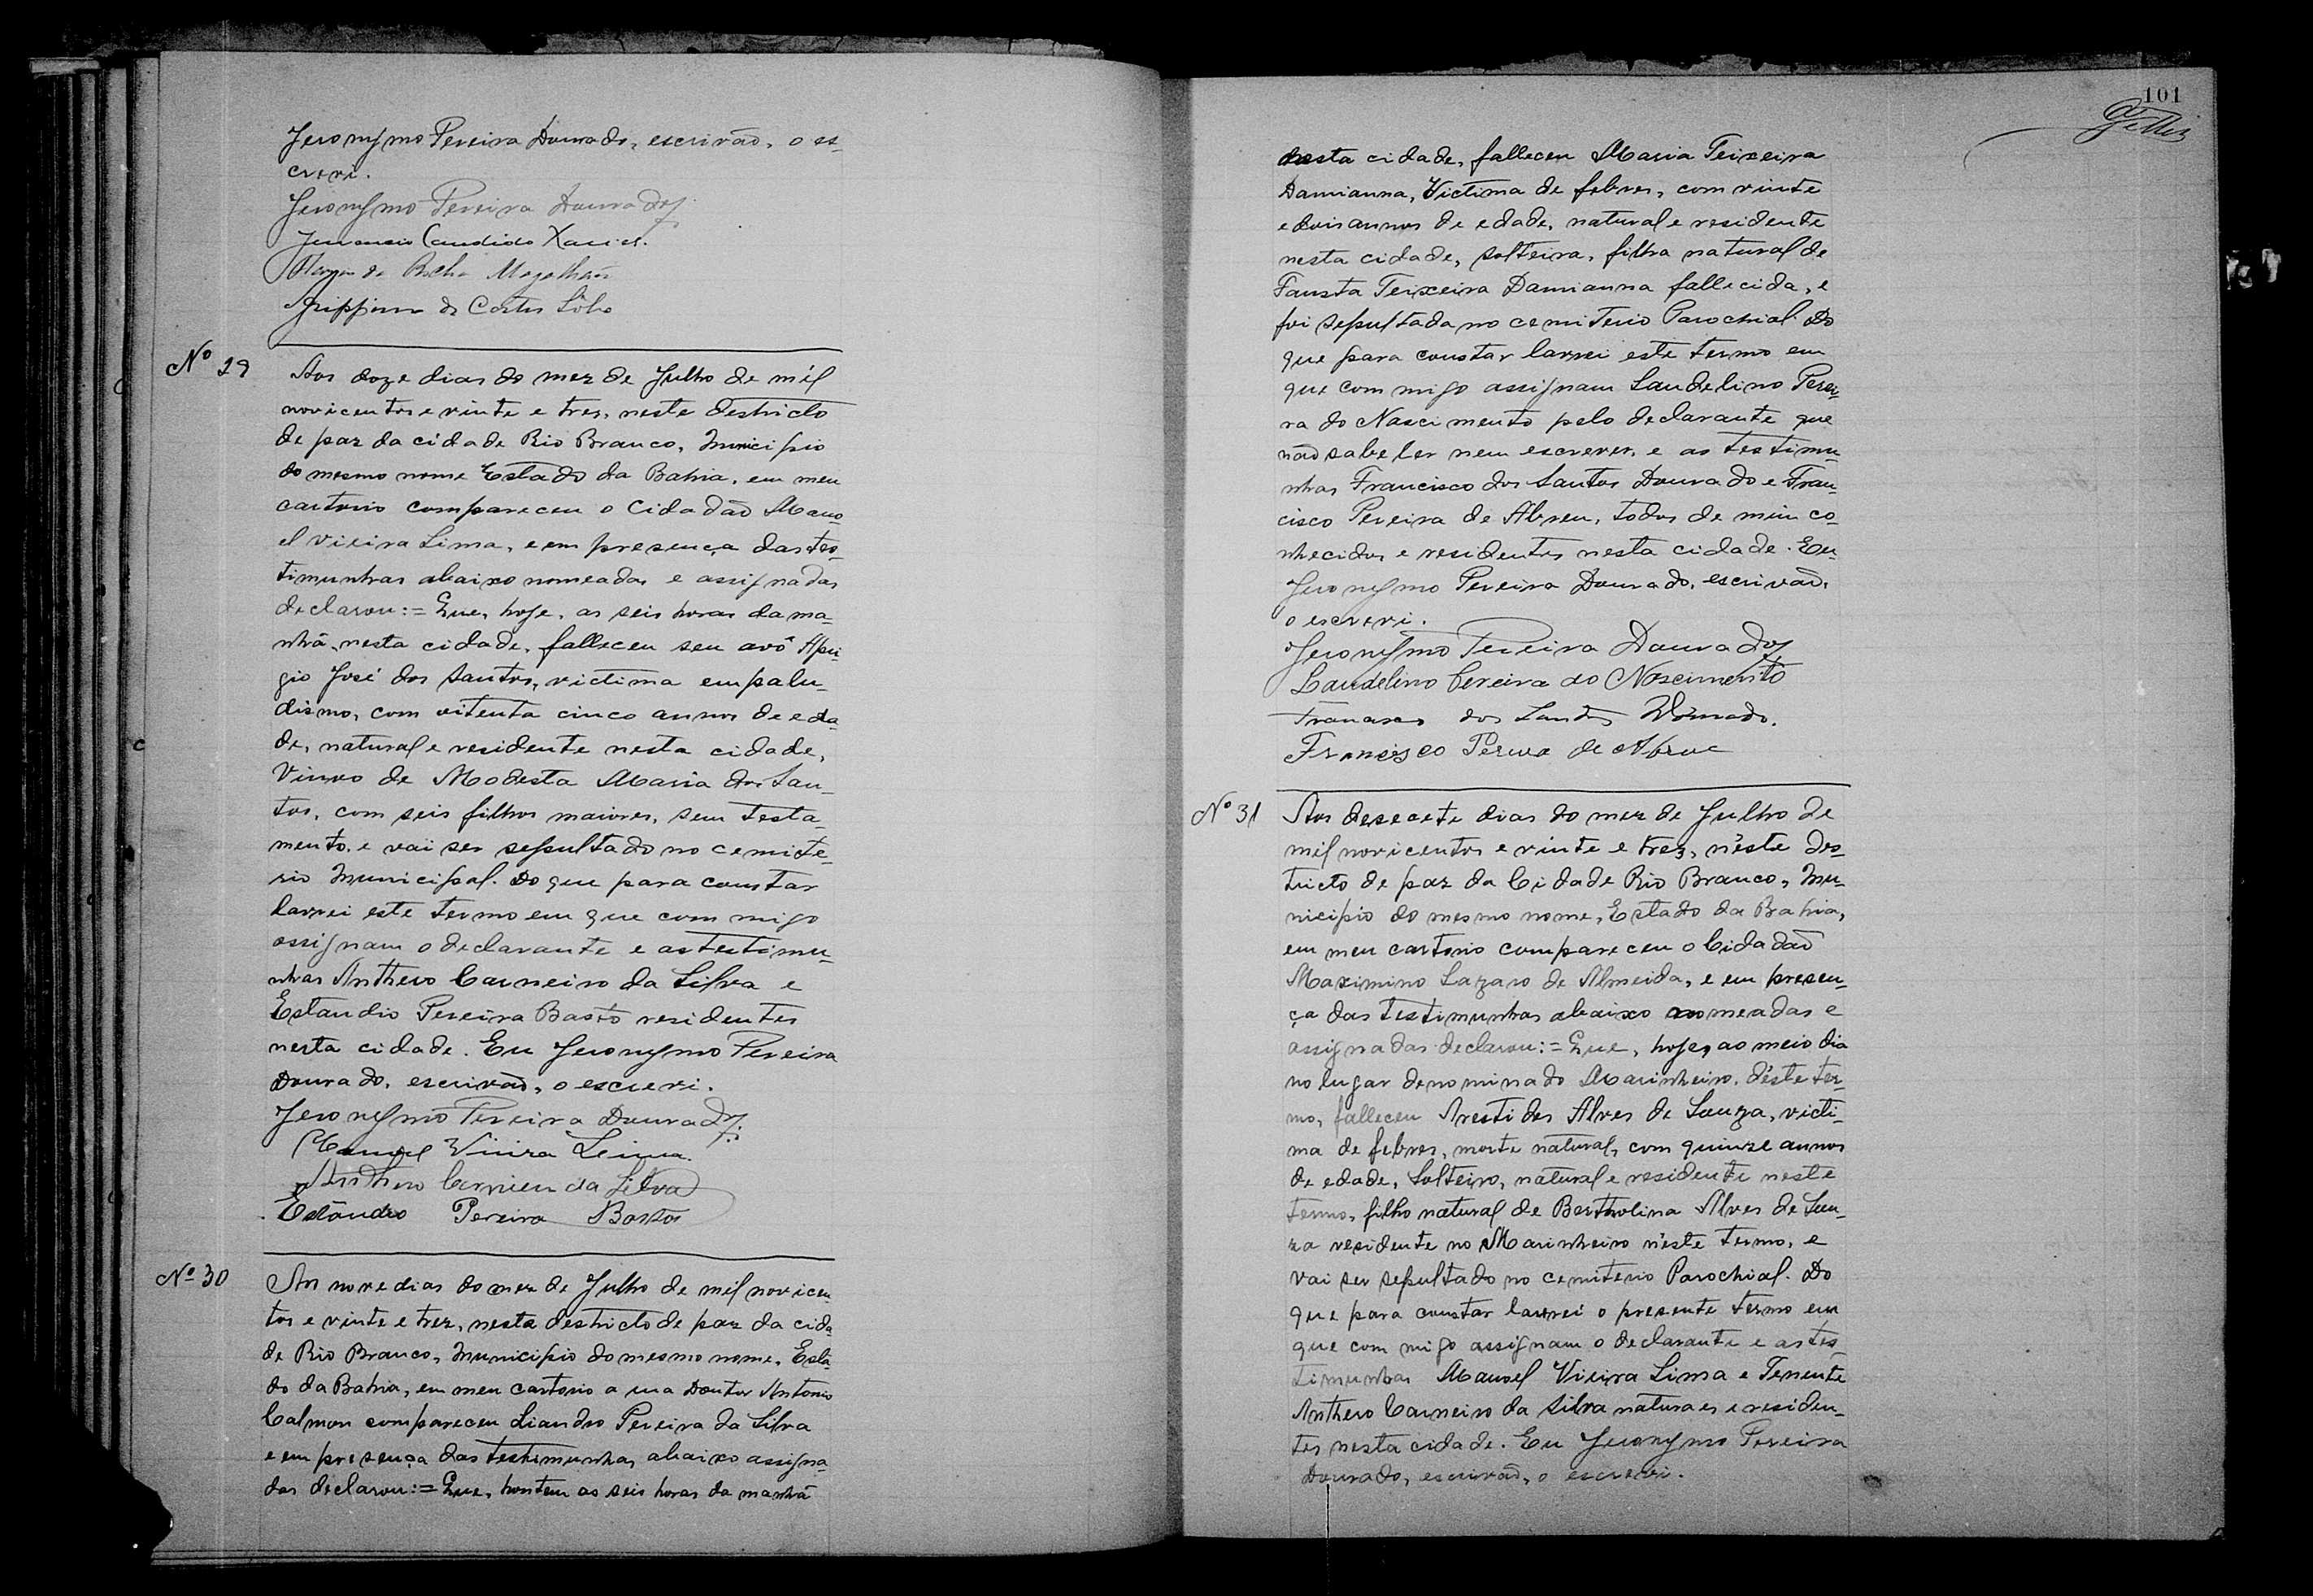 Jeronymo Pereira Dourado, escrivão, o es-
crevi.
Jeronymo Pereira Dourado
Candido Xavier.
da Rocha Magalhães
de Castro Lôbo
Nº 29
Aos doze dias do mez de Julho de mil
novicentos e vinte e tres, neste destricto
de paz da cidade Rio Branco, Municipio
do mesmo nome Estado da Bahia, em meu
cartorio compareceu o Cidadão Mano-
el Vieira Lima, e em presença das tes-
timunhas abaixo nomeadas e assignadas
declarou:= Que, hoje, as seis horas da ma-
nhã, nesta cidade, falleceu seu avô Apri-
gio José dos Santos, victima empalu-
dismo, com oitenta cinco annos de eda-
de, natural e residente nesta cidade,
Viuvo de Modesta Maria dos San-
tos, com seis filhos maiores, sem testa-
mento, e vai ser sepultado no cemite-
rio Municipal. Do que para constar
lavrei este termo em que com migo
assignam o declarante e as testimu-
nhas Anthero Carneiro da Silva e
Estandio Pereira Basto residentes
nesta cidade. Eu Jeronymo Pereira
Dourado, escrivão, o escrevi.
Jeronymo Pereira Dourado
Manoel Vieira Lima.
Anthero Carneiro da Silva
Estândio Pereira Bastos
Nº 30
Aos nove dias do mez de Julho de mil novicen-
tos e vinte e trez, nesta destricto de paz da cida-
de Rio Branco, Municipio do mesmo nome, Esta-
do da Bahia, em meu cartorio a rua Doutor Antonio
Calmon compareceu Liandro Pereira da Silva
e em presença das testimunhas abaixo assigna-
das declarou:= Que, hontem as seis horas da manhã
101
desta cidade, falleceu Maria Teixeira
Damianna, Victima de febres, com vinte
e dois annos de edade, natural e residente
nesta cidade, solteira, filha natural de
Fausta Teixeira Damianna fallecida, e
foi sepultada no cemiterio Parochial. Do
que para constar lavrei este termo em
que com migo assignam Laudelino Perei-
ra do Nascimento pelo declarante que
não sabe ler nem escrever, e as testimu-
nhas Francisco dos Santos Dourado e Fran-
cisco Pereira de Abreu, todos de mim co-
nhecidos e residentes nesta cidade. Eu
Jeronymo Pereira Dourado, escrivão,
o escrevi.
Jeronymo Pereira Dourado
Laudelino Pereira do Nascimento
Francisco dos Santos Dourado.
Francisco Pereira de Abreu
Nº 31
Aos desecete dias do mez de Julho de
mil novicentos e vinte e trez, n'este des-
tricto de paz da Cidade Rio Branco, Mu-
nicipio do mesmo nome, Estado da Bahia,
em meu cartorio compareceu o Cidadão
Maximino Lazaro de Almeida, e em presen-
ça das testimunhas abaixo nomeadas e
assignadas declarou:= Que, hoje, ao meio dia
no lugar denominado Marinheiro, d'este ter-
mo, falleceu Arestides Alves de Souza, victi-
ma de febres, morte natural, com quinze annos
de edade, Solteiro, natural e residente neste
termo, filho natural de Bertholina Alves de Sou-
za residente no Marinheiro n'este termo, e
vai ser sepultado no cemiterio Parochial. Do
que para constar lavrei o presente termo em
que com migo assignam o declarante e as tes-
timunhas Manoel Vieira Lima e Tenente
Anthero Carneiro da Silva naturaes e residen-
tes nesta cidade. Eu Jeronymo Pereira
Dourado, escrivão, o escrevi.